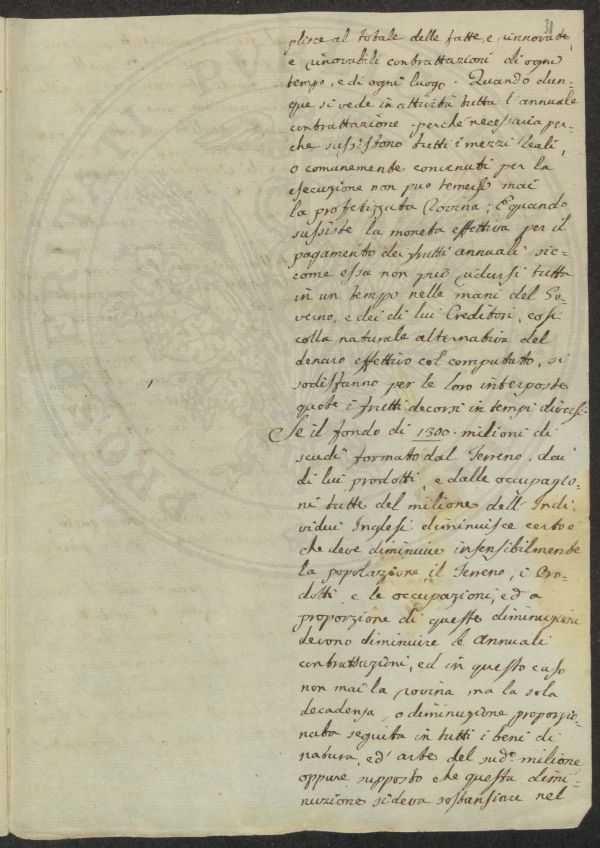 31
plisce al totale delle fatte, e rinnovate,
e rinovabili contrattazioni di ogni
tempo, e di ogni luogo. Quando dun-
que si vede in attività tutta l'annuale
contrattazione perché necessaria per-
che sussistono tutti i mezzi reali,
o comunemente convenuti per la
esecuzione non può temersi mai
la profetizzata Rovina; E quando
sussiste la moneta effettiva per il
pagamento dei frutti annuali sic-
come essa non può ridursi tutta
in un tempo nelle mani del Go-
verno, e dei di lui Creditori, cosi
colla naturale alternativa del
denaro effettivo col computato, si
sodisfanno per le loro interposte
quote i frutti decorsi in tempi diversi.
Se il fondo di 1300 milioni di
scudi formatto dal Terreno, dai
di lui prodotti, e dalle occupazio-
ni tutte del milione dell' Indi-
vidui Inglesi diminuisce certo è
che deve diminuire insensibilmente
la popolazione, il Terreno, i Pro-
dotti e le occupazioni, ed a
proporzione di queste diminuzioni
devono diminuire le annuali
contrattazioni, ed in questo caso
non mai la rovina ma la sola
decadenza, o diminuzione proporzio-
nata seguita in tutti i beni di
natura, ed arte del sud.o milione
oppure supposto che questa dimi-
nuzione si deva sostansiare nel